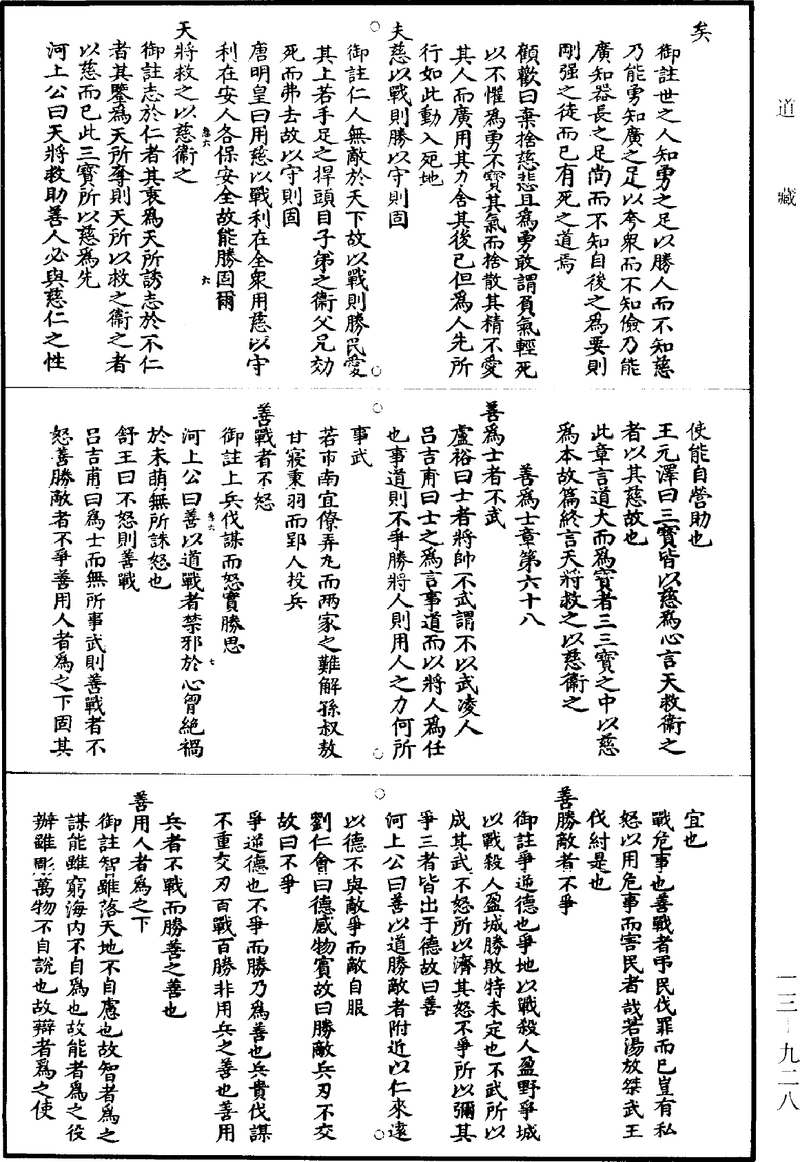 道藏
矣
御註世之人知勇之足以勝人而不知慈
乃能勇知廣之足以夸衆而不知儉乃能
廣知器長之足尚而不知自後之爲要則
剛强之徒而已有死之道焉
顧歡曰棄捨慈悲且爲勇敢謂負氣輕死
以不懼爲勇不寳其氣而捨散其精不愛
其人而廣用其力舍其後已但爲人先所
行如此動入死地
夫慈以戰則勝以守則固
御註仁人無敵於天下故以戰則勝民愛
其上若手足之捍頭目子弟之衛父兄効
死而弗去故以守則固
唐明皇曰用慈以戰利在全衆用慈以守
利在安人各保安全故能勝固爾
天將救之以慈衛之
御註志於仁者其衷爲天所誘志於不仁
者其鑒爲天所奪則天所以救之衛之者
以慈而已此三寳所以慈爲先
河上公曰天將救助善人必與慈仁之性
使能自營助也
王元澤曰三寳皆以慈爲心言天救衛之
者以其慈故也
此章言道大而爲寳者三三寳之中以慈
爲本故篇終言天將救之以慈衛之
善爲士章第六十八
善爲士者不武
盧裕曰士者將帥不武謂不以武凌人
吕吉甫曰士之爲言事道而以將人爲任
也事道則不爭勝將人則用人之力何所
事武
若市南宜僚弄丸而兩家之難解孫叔敖
甘寢秉羽而郢人投兵
善戰者不怒
御註上兵伐謀而怒實勝思
河上公曰善以道戰者禁邪於心胷絶禍
於未萌無所誅怒也
舒王曰不怒則善戰
吕吉甫曰爲士而無所事武則善戰者不
怒善勝敵者不爭善用人者爲之下固其
宜也
戰危事也善戰者弔民伐罪而已豈有私
怒以用危事而害民者哉若湯放桀武王
伐紂是也
善勝敵者不爭
御註爭逆德也爭地以戰殺人盈野爭城
以戰殺人盈城勝敗特未定也不武所以
成其武不怒所以濟其怒不爭所以彌其
爭三者皆出于德故曰善
河上公曰善以道勝敵者附近以仁來遠
以德不與敵爭而敵自服
劉仁會曰德感物賓故曰勝敵兵刃不交
故曰不爭
爭逆德也不爭而勝乃爲善也兵貴伐謀
不重交刃百戰百勝非用兵之善也善用
兵者不戰而勝善之善也
善用人者爲之下
御註智雖落天地不自慮也故智者爲之
謀能雖窮海内不自爲也故能者爲之役
辯雖彫萬物不自說也故辯者爲之使
一三－九二八